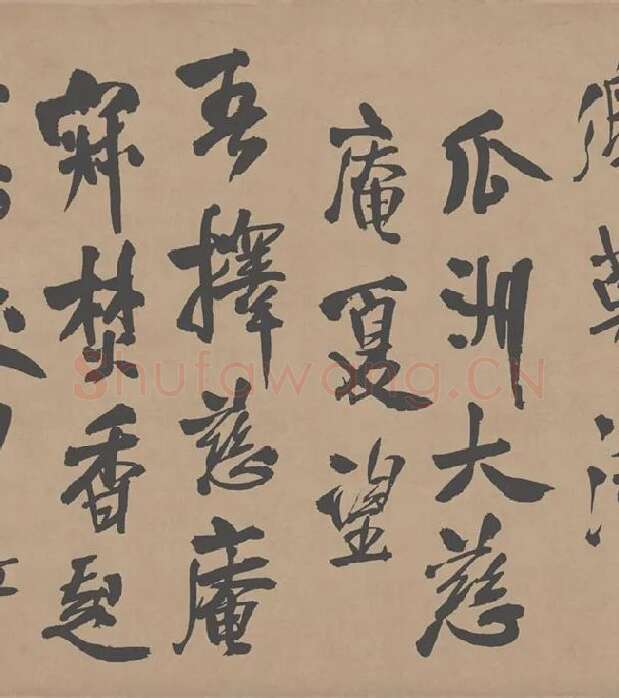 瓜洲大慈
庵夏望
吾擇慈庵
寐焚香起
Shufawang.CN